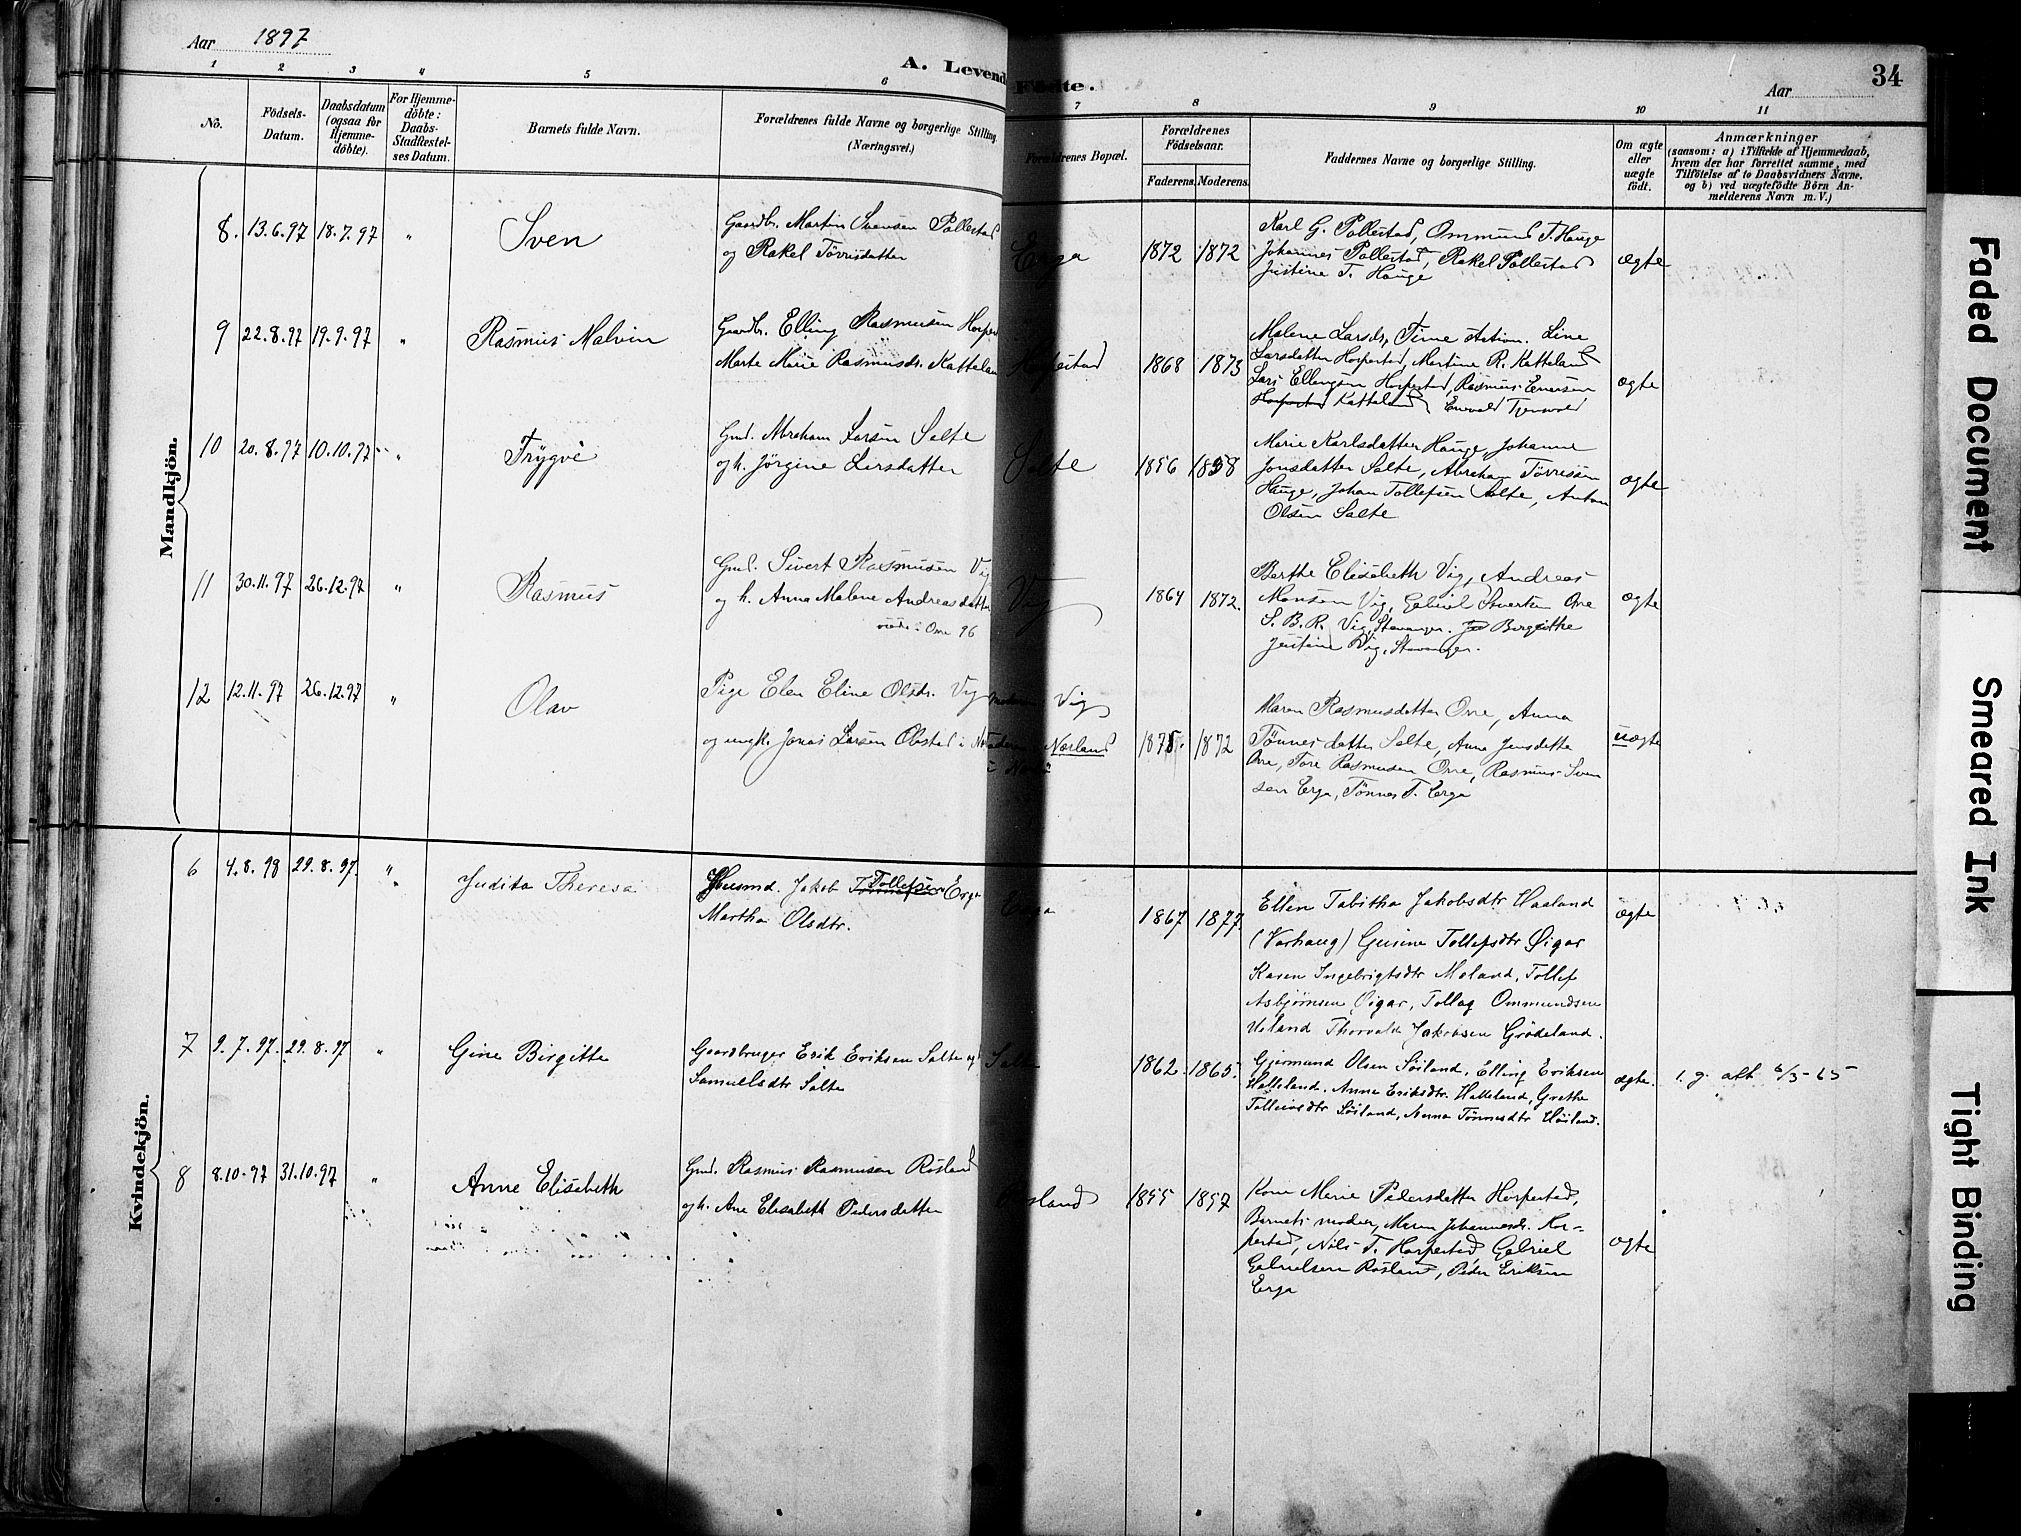 Aar 1897
A. Levende Fødte.
34
Aar
1 2 3 4 5 6 7 8 9 10 11
No.
Fødsels-Datum.
Daabsdatum (ogsaa for Hjemme-døbte).
For Hjemme-døbte: Daabs-Stadfæstel-ses Datum.
Barnets fulde Navn.
Forældrenes fulde Navne og borgerlige Stilling (Næringsvei.)
Forældrenes Bopæl.
Forældrenes Fødselsaar.
Faderens. Moderens.
Faddernes Navne og borgerlige Stilling.
Om ægte eller uægte født.
Anmærkninger
(saasom: a) i Tilfælde af Hjemmedaab, hvem der har forrettet samme, med Tilføielse af to Daabsvidners Navne. og b) ved uægtefødte Børn An-melderens Navn m. V.)
Mandkjön.
8. 13.6.97 18.7.97 "
Sven
Gaardbr. Martin Svensen Pollestad
og Rakel Törrisdatter
Erga
1872 1872
Karl G. Pollestad, Ommund T. Hauge
Johannes Pollestad, Rakel Pollestad
Justine T. Hauge
ægte
9 22.8.97 19.9.97 "
Rasmus Malvin
Gaardbr. Elling Rasmusen Horpe
Marte Marie Rasmusdr. Kattelan
Horpestad
1868 1873
Malene Larsdr, Time station. Line
Larsdatter Horpestad, Martine R. Katteland
Lars Ellingsen Horpestad, Rasmus Enersen
Horpestad Katteland,
ægte
10 20.8.97 10.10.97 "
Trygve
Gmd. Abraham Larsen Salte
og h. Jørgine Larsdatter
Salte
1856 1858
Marie Karlsdatter Hauge, Johanne
Jonsdatter Salte, Abraham Törresen
Hauge, Johan Tollefsen Salte, Anton
Olsen Salte
ægte
11 30.11.97 26.12.97 "
Rasmus
Gmd. Sivert Rasmusen Vig
og h. Anna Malene Andreasdatter
viede i Orre 96
Vig
1864 1872.
Berthe Elisabeth Vig, Andreas
Monsen Vig, Gabriel Sivertsen Orre
S. B. R. Vig, Stavanger. Birgithe
Justine Vig, Stavanger.
ægte
12 12.11.97 26.12.97 "
Olav
Pige Elen Eline Olsdr. Vig
og ungk. Jonas Larsen Obstad i
Vig
Norland
1875. 1872
Maren Rasmusdatter Orre, Anna
Tönnesdatter Salte, Anna Jensdatter
Orre, Tore Rasmusen Orre, Rasmus Sven
sen Erga, Tönnes T. Erga
uægte
Kvindekjön.
6 4.8.98 29.8.97. "
Judita Theresa
Husmd. Jakob Tollefsen Erga
Martha Olsdtr.
Erga
1867 1877.
Ellen Tabitha Jakobsdtr Haaland
(Varhaug) Gurine Tollefsdtr Øigar
Karen Ingebrigtsdtr Meland, Tollef
Asbjørnsen Øigar, Tollag Ommundsen
Thorvald Jakobsen Grødeland.
ægte
7 9.7.97. 29.8.97 "
Gine Birgitte
Gaardbruger Erik Eriksen Salte og
Samuelsdtr Salte
Salte
1862. 1865.
Gjermund Olsen Söiland, Elling Eriksen
Halleland. Anna Eriksdtr. Halleland, Grethe
Tolleivsdtr Söiland, Anna Tönnesdtr Höiland.
ægte.
1. g. att 6/3-65
8 8.10.97 31.10.97 "
Anne Elisabeth
Gmd. Rasmus Rasmusen Rosland
og h. Ane Elisabeth Pedersdatter
Rosland
1855 1857
Marie Pedersdatter Horpestad,
Barnets moder, Maren Johannesdr. Hor-
pestad, Nils T. Horpestad, Gabriel
Gabrielsen Rosland, Peder Eriksen
Erga
ægte
Faded Document
Smeared Ink
Tight Binding